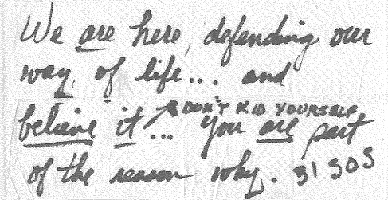 We are here, defending our
way of life... and
DON'T KID YOURSELF
believe it... You are part
of the reason why. 31 SOS